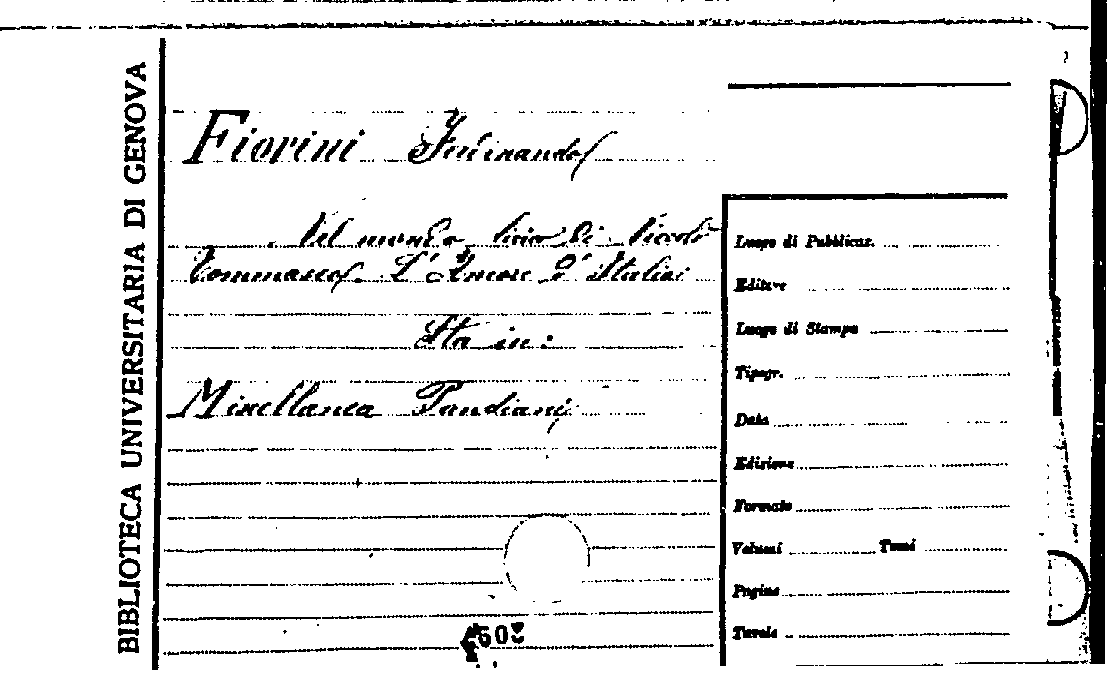 BIBLIOTECA UNIVERSITARIA DI GENOVA
Fiorini Ferdinando
Nel mondo lirico di Nicolò
Tommaseo. L'Amore d'Italia:
Sta in:
Miscellanea Pandiani
Luogo di Pubblicaz.
Editore
Luogo di Stampa
Tipogr.
Data
Edizione
Formato
Volumi Tomi
Pagine
Tavole